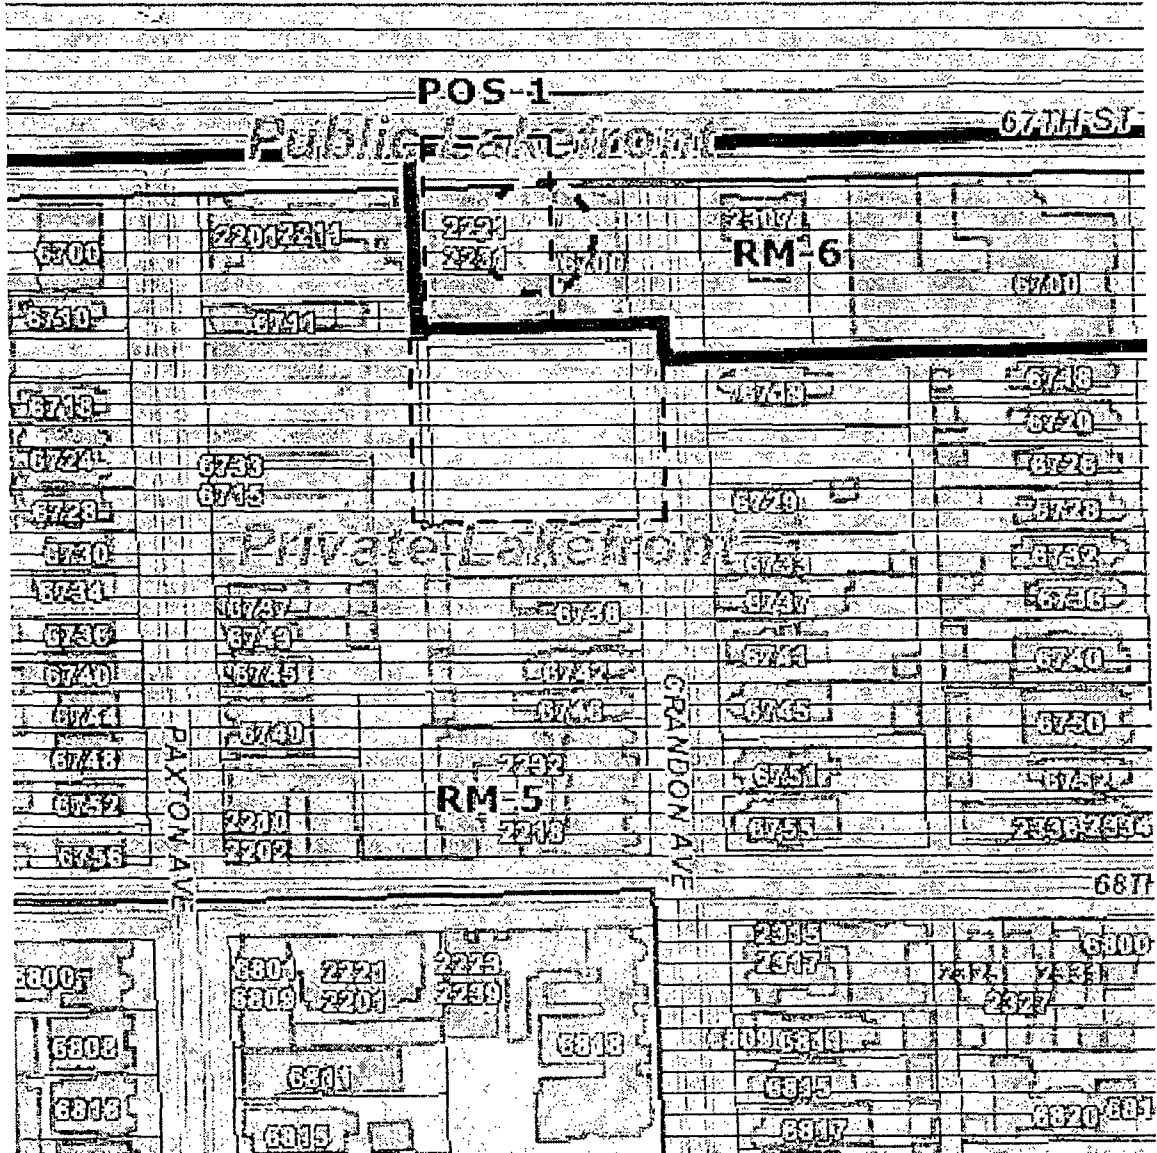 POS-1
Public Lakefront
67TH ST
2221
2307
22012211
6700
2231
6700
RM-6
6700
6710
6711
6719
6718
6718
6720
6724
6733
6726
6715
6729
6728
6728
6730
Private Lakefront
6733
6732
6734
6737
6738
6737
6736
6736
6743
6740
6745
6742
6741
6740
6744
6746
6745
6749
6750
PAXTON AVE
GRANDON AVE
6748
2232
6751
6752
6752
RM-5
2210
2218
6755
2336 2334
6756
2202
68TH
2315
6800
6801
2221
2223
2317
6800
6809
2201
2239
2325
2331
2327
6808
6818
6809 6811
6811
6815
6818
6820
681
6815
6817